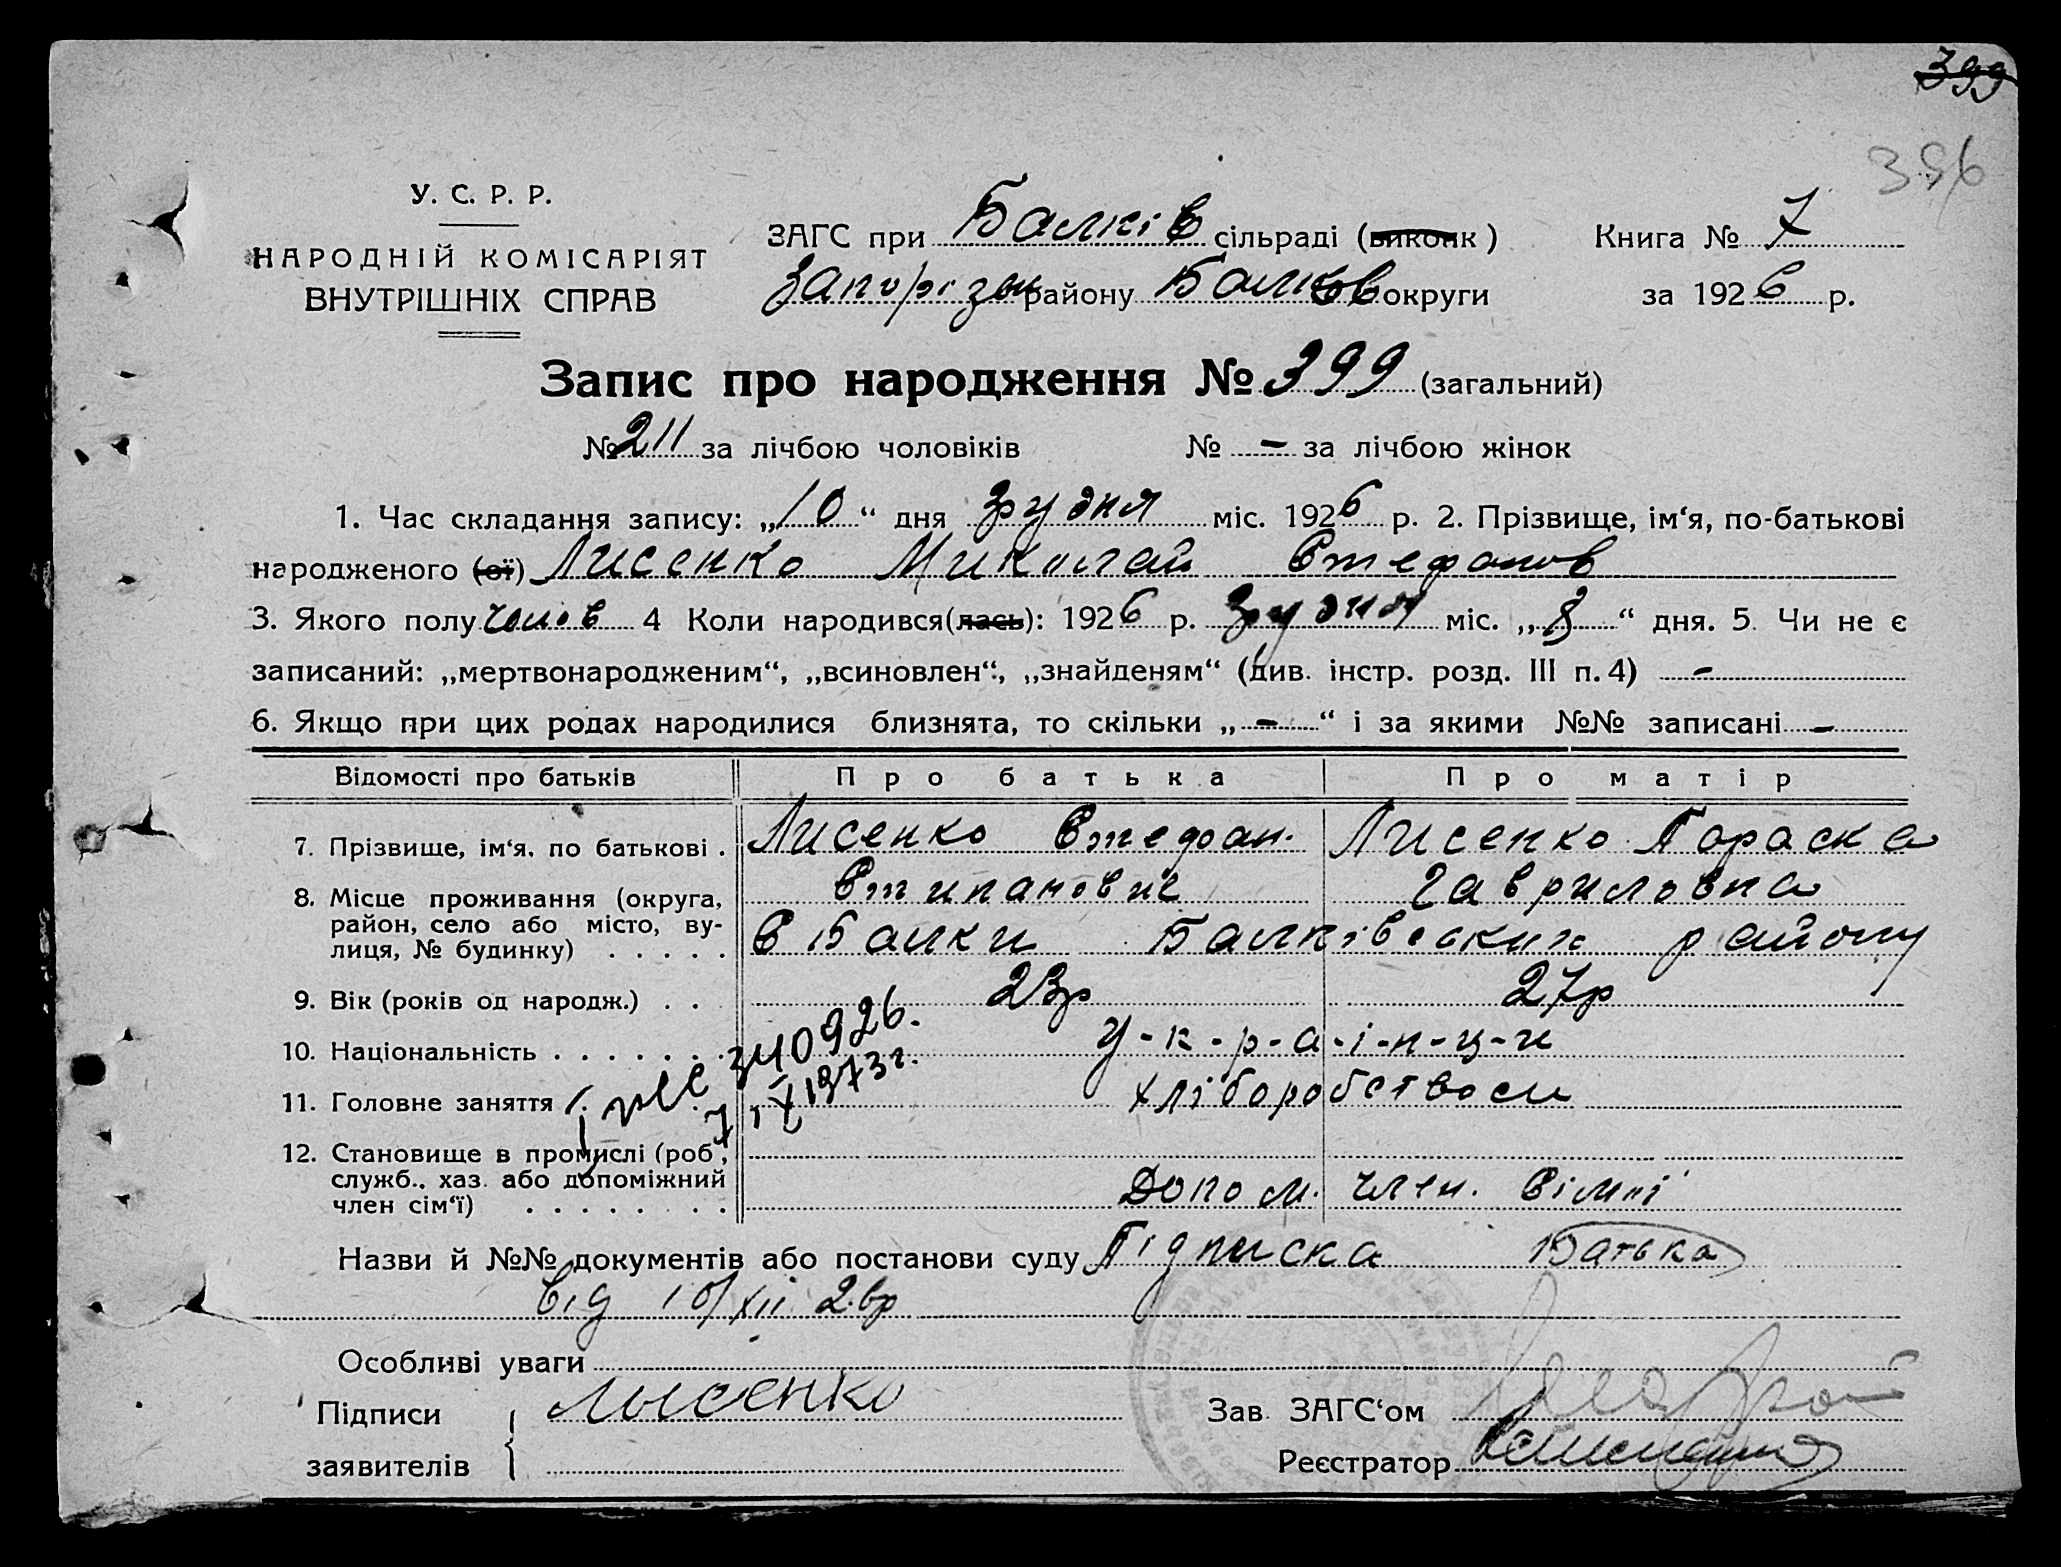 399
356
У. С. Р. Р.
НАРОДНІЙ КОМІСАРІЯТ
ВНУТРІШНІХ СПРАВ
ЗАГС при Балків сільраді (виконк)
Запоріз району Балків округи
Книга № 7
за 1926 р.
Запис про народження № 399 (загальний)
№ 211 за лічбою чоловіків № - за лічбою жінок
1. Час складання запису: „10“ дня грудня міс. 1926 р. 2. Прізвище, ім‘я, по-батькові
народженого (ої) Лисенко Миколай Стефанов
3. Якого полу чолов 4 Коли народився(лась): 1926 р. грудня міс. „8“ дня. 5. Чи не є
записаний: „мертвонародженим“, „всиновлен“, „знайденям“ (див. інстр. розд. III п. 4) -
6. Якщо при цих родах народилися близнята, то скільки „-“ і за якими №№ записані -
Відомості про батьків Про батька Про матір
7. Прізвище, ім‘я, по батькові . Лисенко Стефан. Лисенко Параска
Стипанович Гавриловна
8. Місце проживання (округа,
район, село або місто, ву-
лиця, № будинку) . . . . . В Балки Балківських району
9. Вік (років од народж.) . . 23р 27р
10. Національність . . . . . . . У-к-р-а-ї-н-ц-и
340926.
7 XI 1973 г.
11. Головне заняття хліборобством
12. Становище в промислі (роб.,
служб., хаз. або допоміжний
член сім‘ї) . . . . . . . . Допом. член. сімьї
Назви й №№ документів або постанови суду Підписка Батька
від 10/XII 26р
Особливі уваги
Підписи
заявителів
Лысенко
Зав. ЗАГС‘ом
Реєстратор